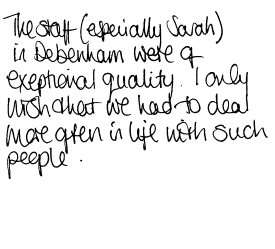 The staff (especially Sarah)
in Debenham were of
exeptional quality. I only
wish that we had to deal
more often in life with such
people.